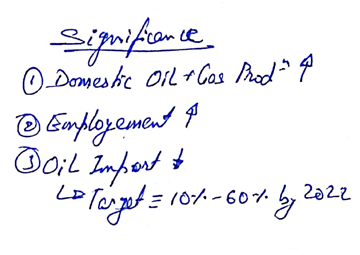 Significance
① Domestic Oil + Gas Prodⁿ ↑
② Employement ↑
③ Oil Import ↓
↳ Target = 10% - 60% by 2022